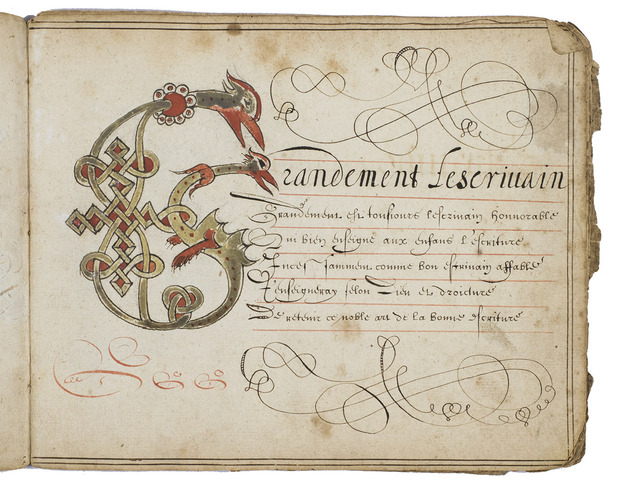 Grandement Lescriuain
Grandement est tousiours lescriuain honnorable
Qui bien enseigne aux enfans l escriture
Incessamment comme bon escriuain affable
Ienseigneray selon Dieu et droicture
De retenir ce noble art de la bonne escriture